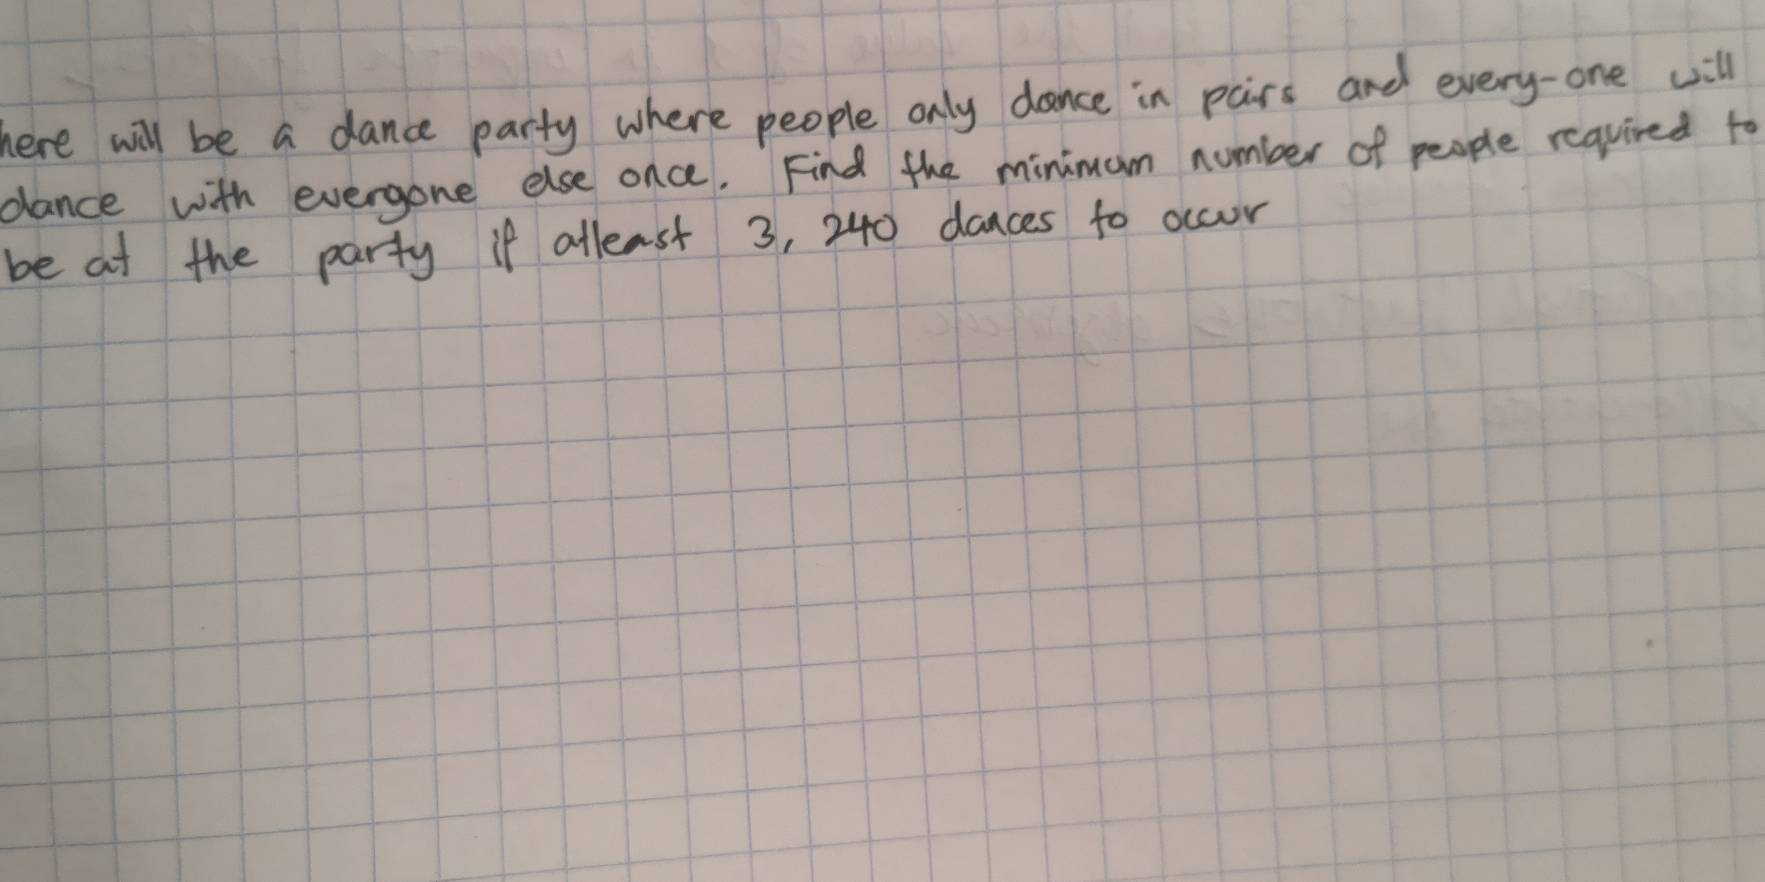 here will be a dance party where people only dance in pairs and every-one will
dance with evergone else once. Find the minimum number of people required to
be at the party if atleast 3, 240 dances to occur